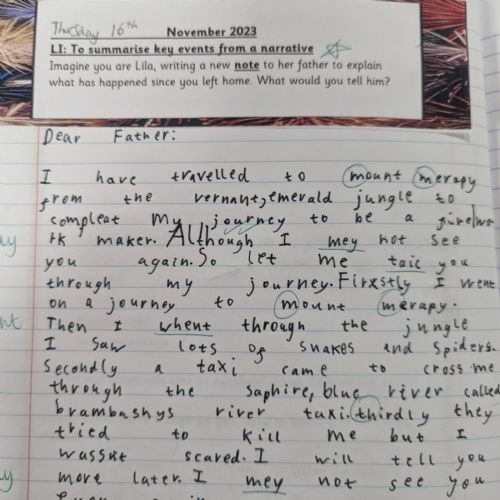 Thursday 16th November 2023
LI: To summarise key events from a narrative
Imagine you are Lila, writing a new note to her father to explain
what has happened since you left home. What would you tell him?
Dear Father:
I have travelled to mount merapy
from the vernant, emerald jungle to
compleat my journey to be a firewo
rk maker. Although I mey not see
you again. So let me taic you
through my journey. Firxstly I went
on a journey to mount merapy.
Then I whent through the jungle
I saw lots of snakes and spiders.
Secondly a taxi came to cross me
through the saphire, blue river called
brambashys river taxi. thirdly they
tried to kill me but I
wassnt scared. I will tell you
more later. I mey not see you